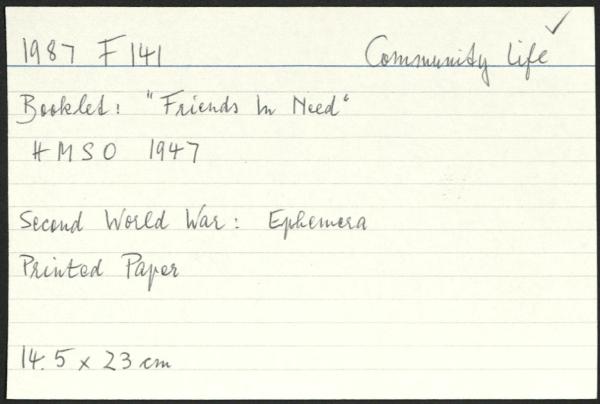 1987 F 141 Community Life ✓
Booklet: "Friends In Need"
HMSO 1947
Second World War: Ephemera
Printed Paper
14.5 x 23 cm